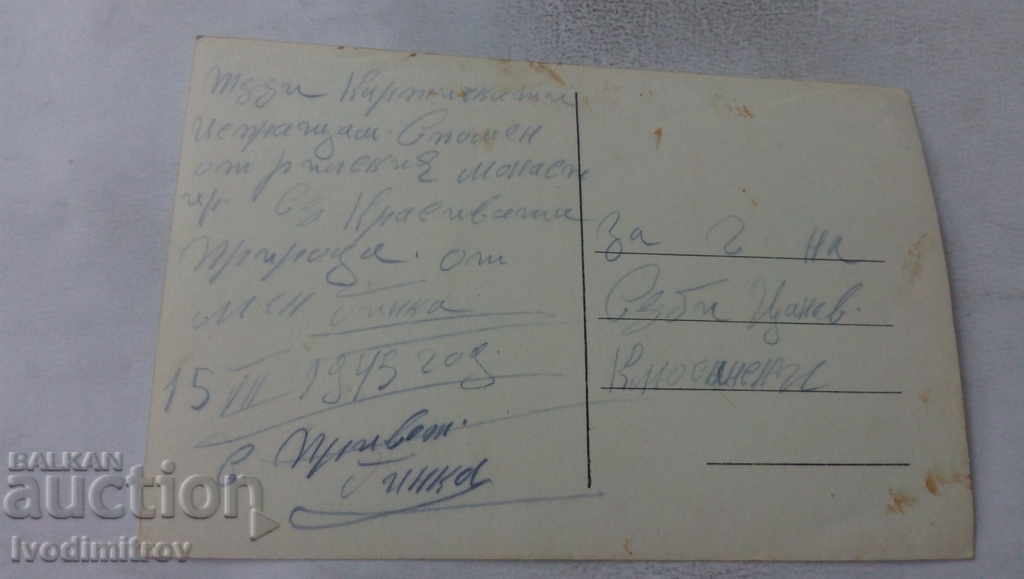 Тзди Картичката
Испращам Спомен
от рилския монаст
ир Сз Красивата
Природа. от
мен Гинка
15 III 1945 год.
С Привет.
Гинка
За Г на
Сзби Цанев.
BALKAN
auction
Ivodimitrov